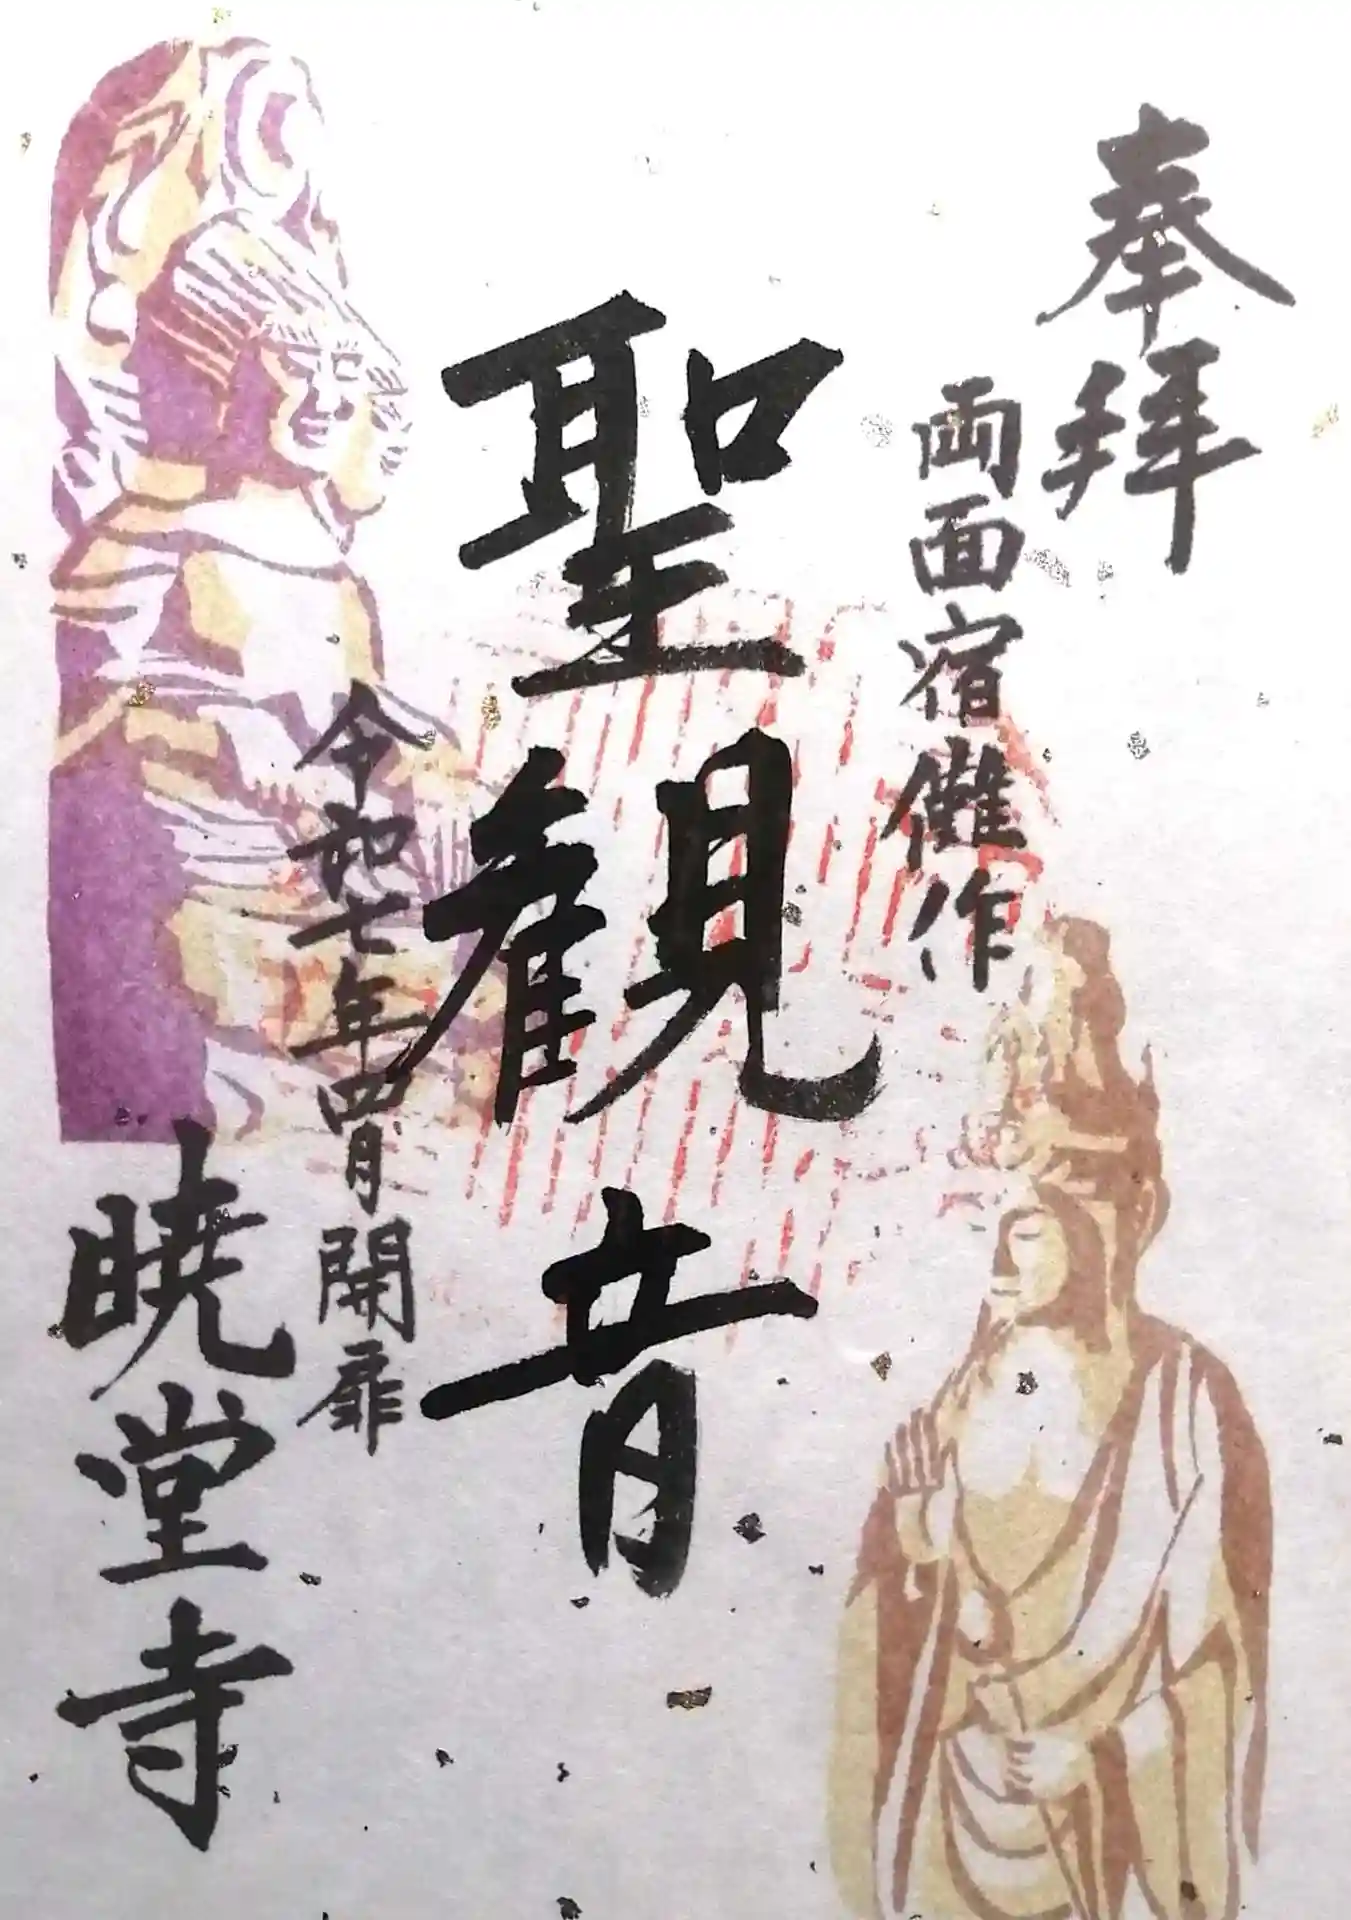 奉拝
両面宿儺作
聖観音
令和七年四月開扉
暁堂寺